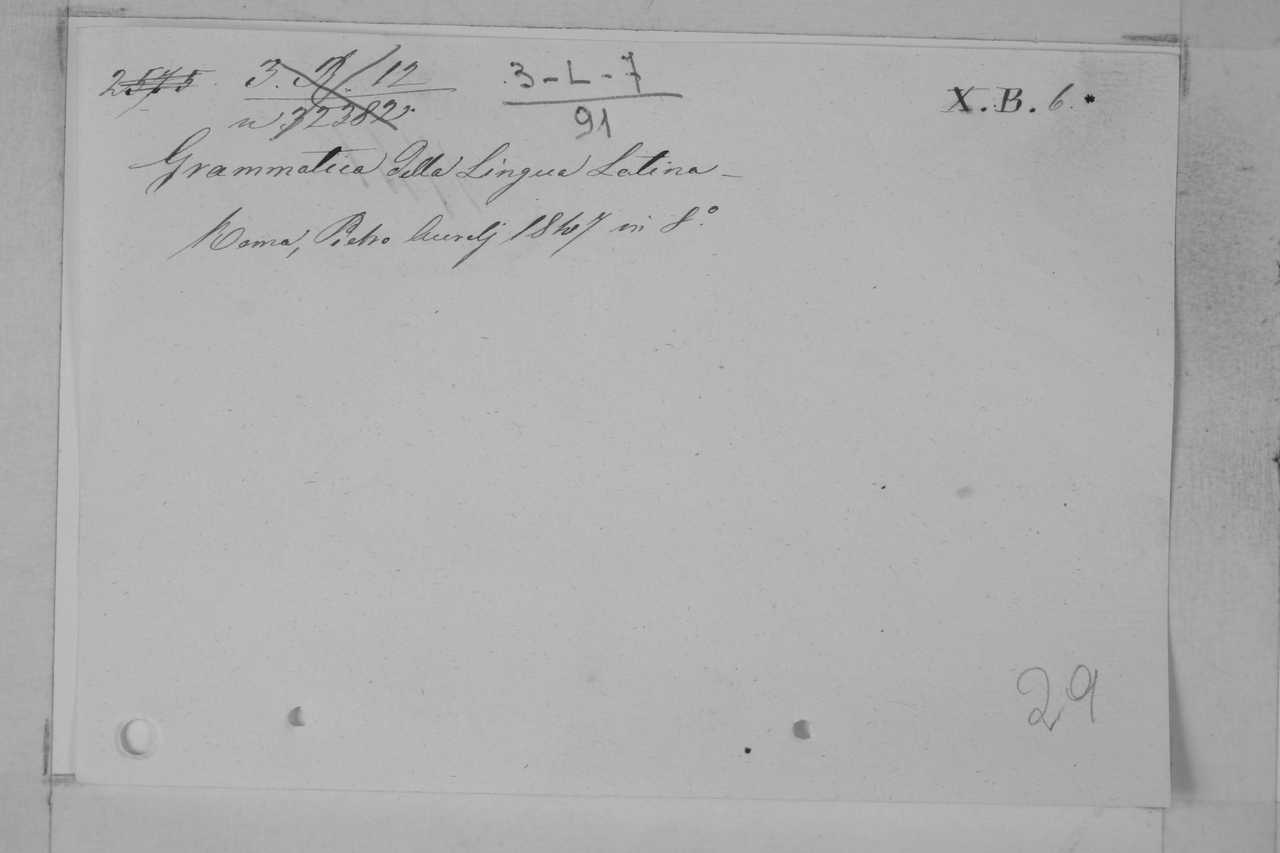 2575 3. 3/. 12 3-L-7 X.B.6.
n. 32382. 91
Grammatica della Lingua Latina -
Roma, Pietro Aurelj 1847 in 8.º
29